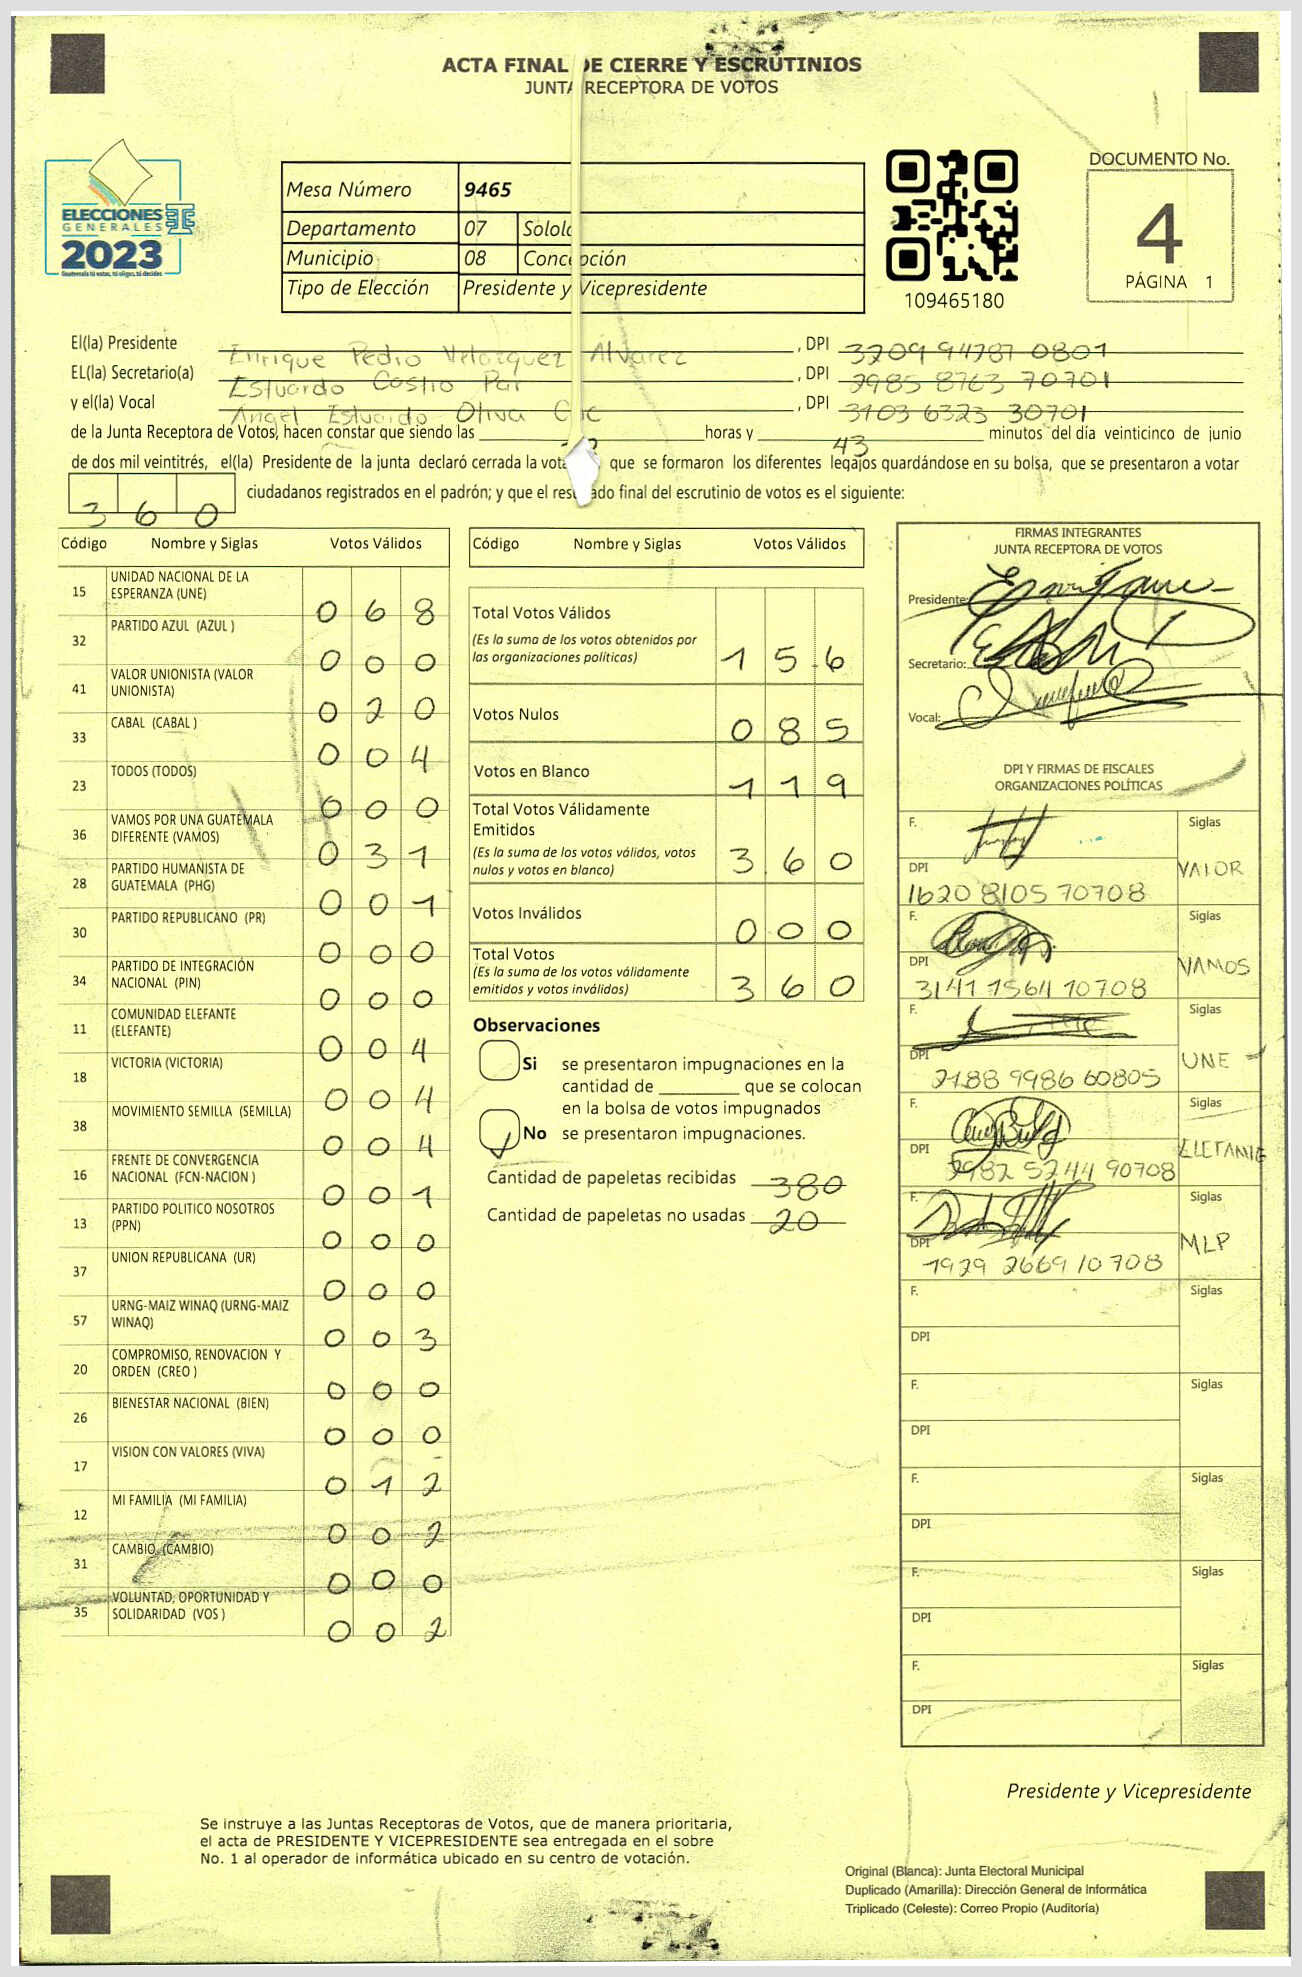 ACTA FINAL DE CIERRE Y ESCRUTINIOS
JUNTA RECEPTORA DE VOTOS
ELECCIONES
GENERALES
2023
Guatemala tú votas, tú eliges, tú decides
Mesa Número 9465
Departamento 07 Sololá
Municipio 08 Concepción
Tipo de Elección Presidente y Vicepresidente
109465180
DOCUMENTO No.
4
PÁGINA 1
El(la) Presidente Enrique Pedro Velazquez Alvarez , DPI 3209 94787 0801
EL(la) Secretario(a) Estuardo Castro Par , DPI 2985 8763 70701
y el(la) Vocal Angel Estuardo Oliva , DPI 3103 6323 30701
de la Junta Receptora de Votos, hacen constar que siendo las horas y 43 minutos del día veinticinco de junio
de dos mil veintitrés, el(la) Presidente de la junta declaró cerrada la que se formaron los diferentes legajos guardándose en su bolsa, que se presentaron a votar
360 ciudadanos registrados en el padrón; y que el resultado final del escrutinio de votos es el siguiente:
Código Nombre y Siglas Votos Válidos
15 UNIDAD NACIONAL DE LA
ESPERANZA (UNE) 068
32 PARTIDO AZUL (AZUL ) 000
41 VALOR UNIONISTA (VALOR
UNIONISTA) 020
33 CABAL (CABAL ) 004
23 TODOS (TODOS) 000
36 VAMOS POR UNA GUATEMALA
DIFERENTE (VAMOS) 031
28 PARTIDO HUMANISTA DE
GUATEMALA (PHG) 001
30 PARTIDO REPUBLICANO (PR) 000
34 PARTIDO DE INTEGRACIÓN
NACIONAL (PIN) 000
11 COMUNIDAD ELEFANTE
(ELEFANTE) 004
18 VICTORIA (VICTORIA) 004
38 MOVIMIENTO SEMILLA (SEMILLA) 004
16 FRENTE DE CONVERGENCIA
NACIONAL (FCN-NACION ) 001
13 PARTIDO POLITICO NOSOTROS
(PPN) 000
37 UNION REPUBLICANA (UR) 000
57 URNG-MAIZ WINAQ (URNG-MAIZ
WINAQ) 003
20 COMPROMISO, RENOVACION Y
ORDEN (CREO ) 000
26 BIENESTAR NACIONAL (BIEN) 000
17 VISION CON VALORES (VIVA) 012
12 MI FAMILIA (MI FAMILIA) 002
31 CAMBIO (CAMBIO) 000
35 VOLUNTAD, OPORTUNIDAD Y
SOLIDARIDAD (VOS ) 002
Código Nombre y Siglas Votos Válidos
Total Votos Válidos
(Es la suma de los votos obtenidos por
las organizaciones políticas) 156
Votos Nulos 085
Votos en Blanco 119
Total Votos Válidamente
Emitidos
(Es la suma de los votos válidos, votos
nulos y votos en blanco) 360
Votos Inválidos 000
Total Votos
(Es la suma de los votos válidamente
emitidos y votos inválidos) 360
Observaciones
Si se presentaron impugnaciones en la
cantidad de ________ que se colocan
en la bolsa de votos impugnados
No se presentaron impugnaciones.
Cantidad de papeletas recibidas 380
Cantidad de papeletas no usadas 20
FIRMAS INTEGRANTES
JUNTA RECEPTORA DE VOTOS
Presidente:
Secretario:
Vocal:
DPI Y FIRMAS DE FISCALES
ORGANIZACIONES POLÍTICAS
F. Siglas
VALOR
DPI
1620 8105 70708
F. Siglas
VAMOS
DPI
3141 1564 10708
F. Siglas
UNE
DPI
2188 9986 60805
F. Siglas
ELEFANTE
DPI
2982 5244 90708
F. Siglas
MLP
DPI
1929 2669 10708
F. Siglas
DPI
F. Siglas
DPI
F. Siglas
DPI
F. Siglas
DPI
F. Siglas
DPI
Presidente y Vicepresidente
Se instruye a las Juntas Receptoras de Votos, que de manera prioritaria,
el acta de PRESIDENTE Y VICEPRESIDENTE sea entregada en el sobre
No. 1 al operador de informática ubicado en su centro de votación.
Original (Blanca): Junta Electoral Municipal
Duplicado (Amarilla): Dirección General de Informática
Triplicado (Celeste): Correo Propio (Auditoría)